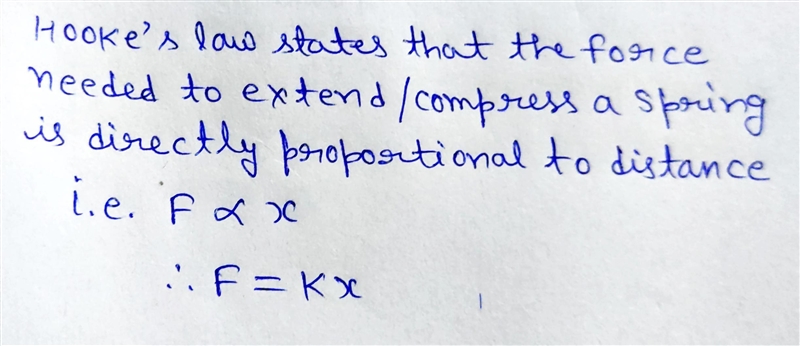 Hooke's law states that the force
needed to extend/compress a spring
is directly proportional to distance
i.e. F ∝ x
∴ F = Kx